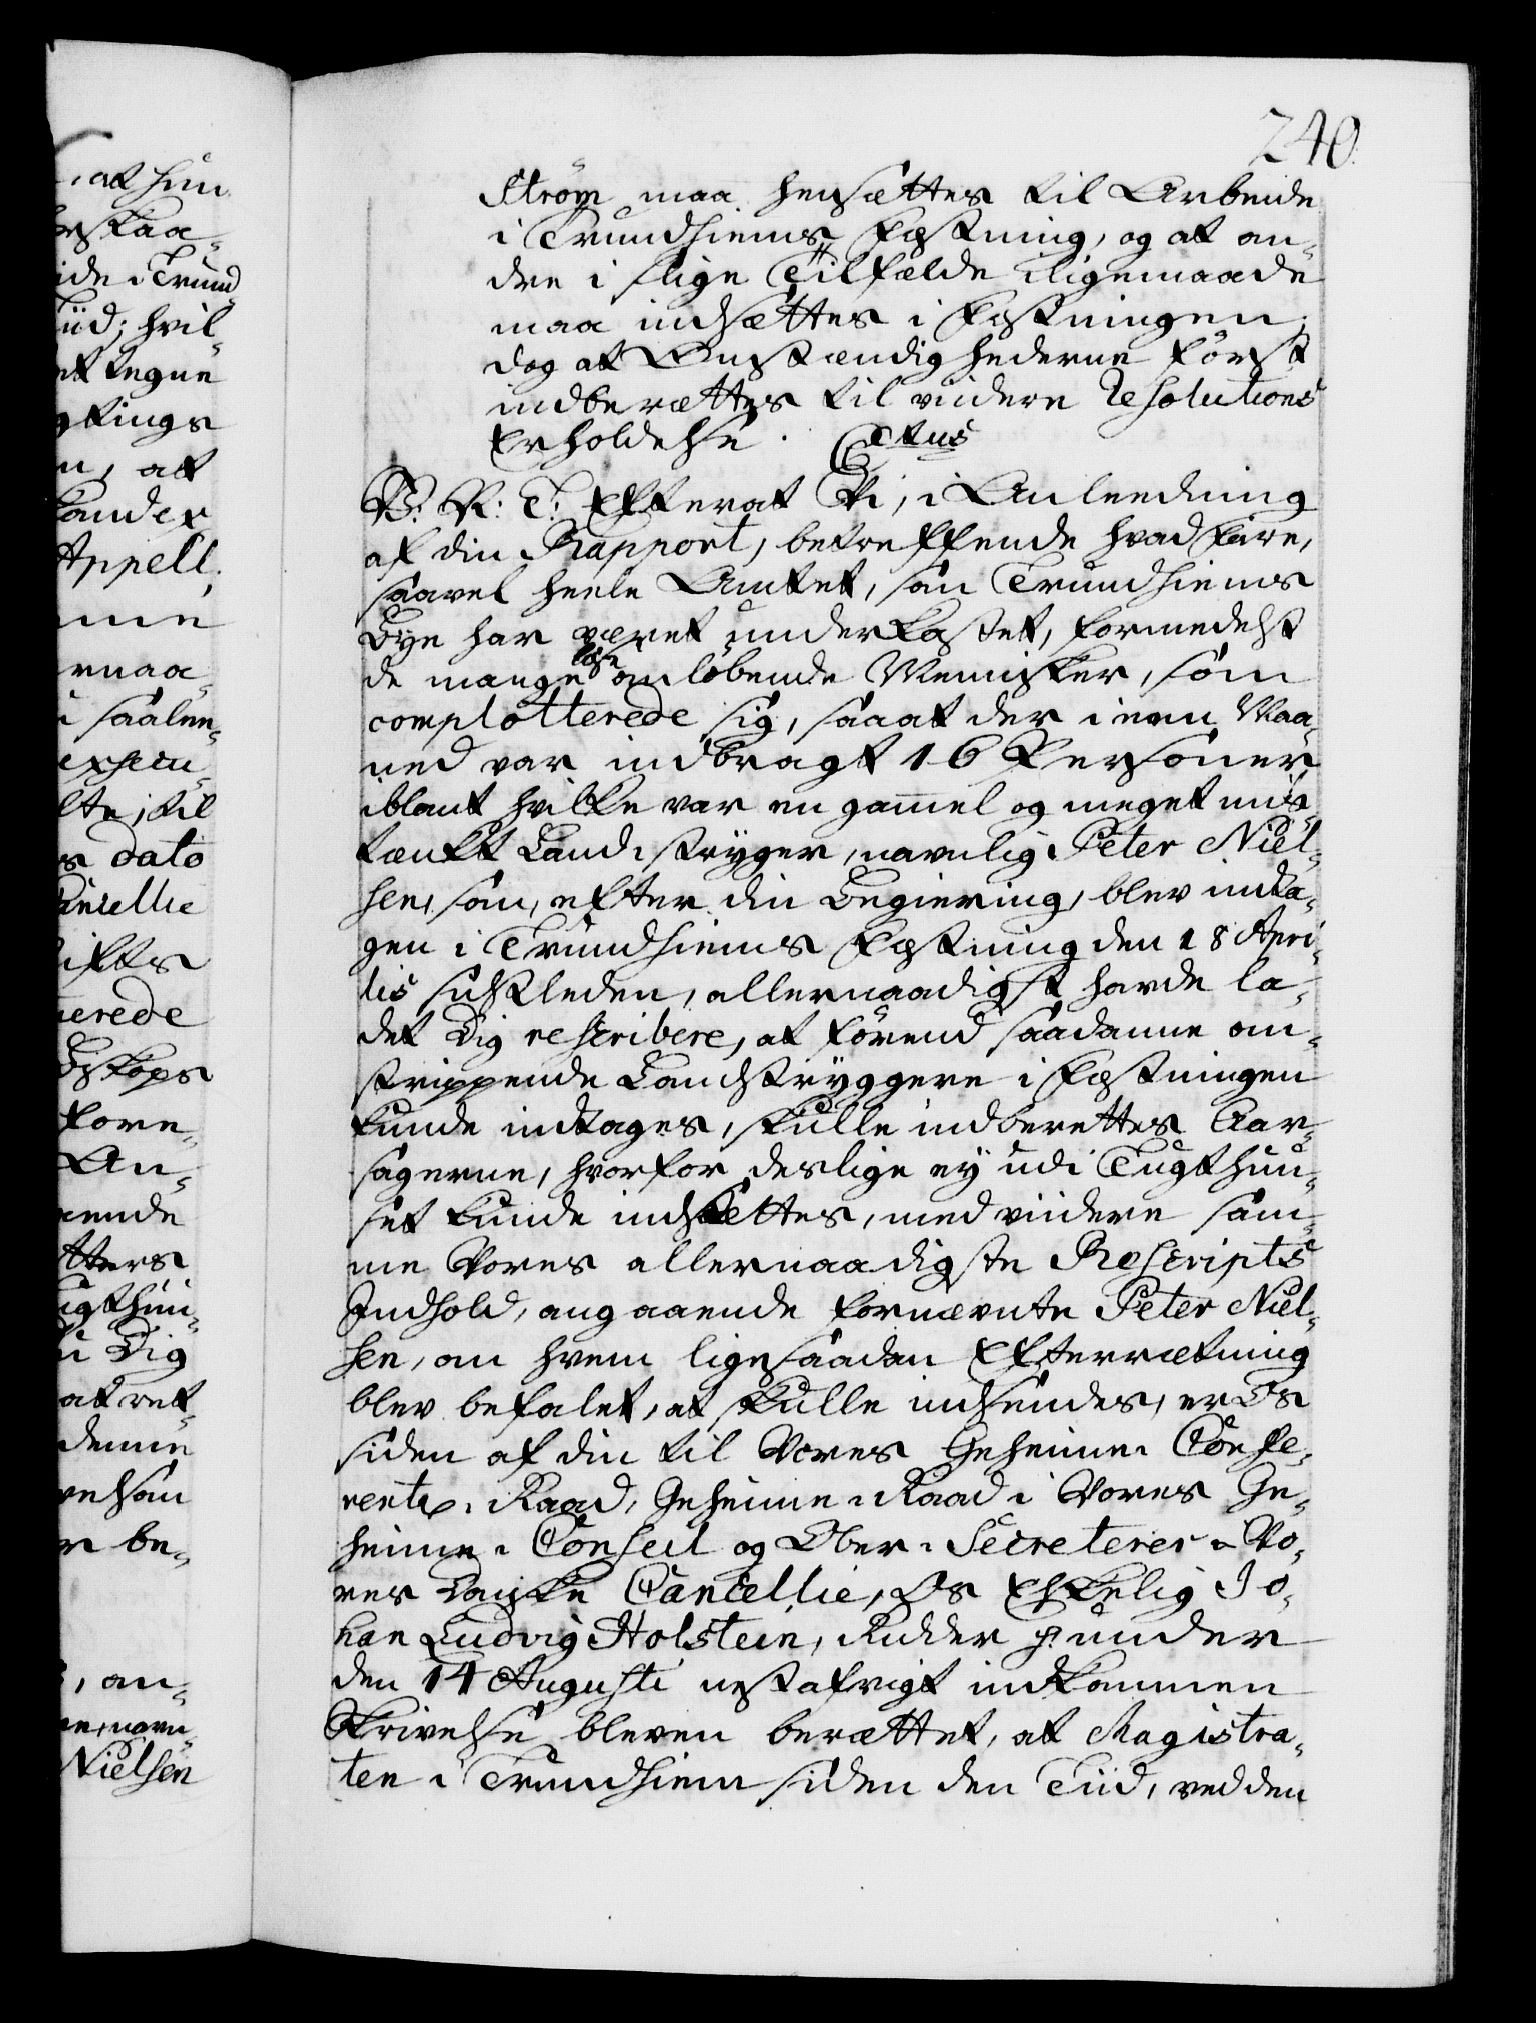 240.
Ström maa hensættes til Arbeide
i Trundhiems Fæstning, og at an-
dre i slige Tilfælde ligemaade
maa indsættes i Fæstningen,
dog at Omstændighederne först
indberættes til viidere Resolutions
Erholdelse.
V: R: T: Efterat Vi, i Anleedning
af din Rapport, betreffende hvad Fare,
saavel heele Amtet, som Trundhiems
Bye har været underkastet, formedelst
de mange löse omlöbende Mennisker, som
complotterede sig, saa at der i een Maa-
ned var indbragt 16 Personer,
iblant hvilke var en gammel og meget mis-
tænkt Landstryger, navnlig Peter Niel-
sen, som, efter din Begiering, blev indta-
gen i Trundhiems Fæstning den 18 Apri-
lis sidstleden, allernaadigst havde la-
det Dig rescribere, at förend saadanne om-
strippende Landstryggere i Fæstningen
kunde indtages, skulle indberettes Aar-
sagerne, hvorfor deslige ey udi Tugthuu-
set kunde indsættes, med viidere sam-
me Vores allernaadigste Rescripts
Indhold, angaaende fornævnte Peter Niel-
sen, om hvem lige saadan Efterrætning
blev befalet, at skulle indsendes, er Os
siden af din til Vores Geheime Confe-
rentz-Raad, Geheime-Raad i Vores Ge-
heime-Conseil og Ober-Secreterer i Vo-
res Danske Cancellie, Os Elskelig Jo-
han Ludvig Holstein, Ridder under
den 14 Augusti nestafvigt indkommen
Skrivelse bleven berættet, at Magistra-
ten i Trundhiem siden den Tiid, ved den